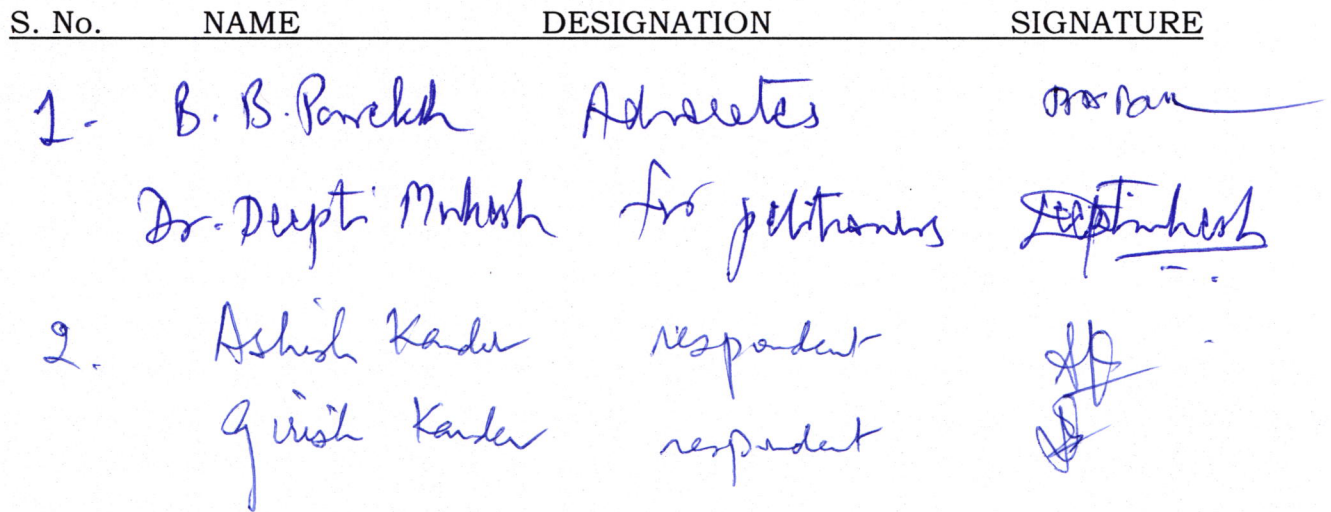 S. No. NAME DESIGNATION SIGNATURE
1. B. B. Parekh Advocates
Dr. Deepti Mukesh for petitioners Deeptimukesh
2. Ashish Kander respondent
Girish Kander respondent